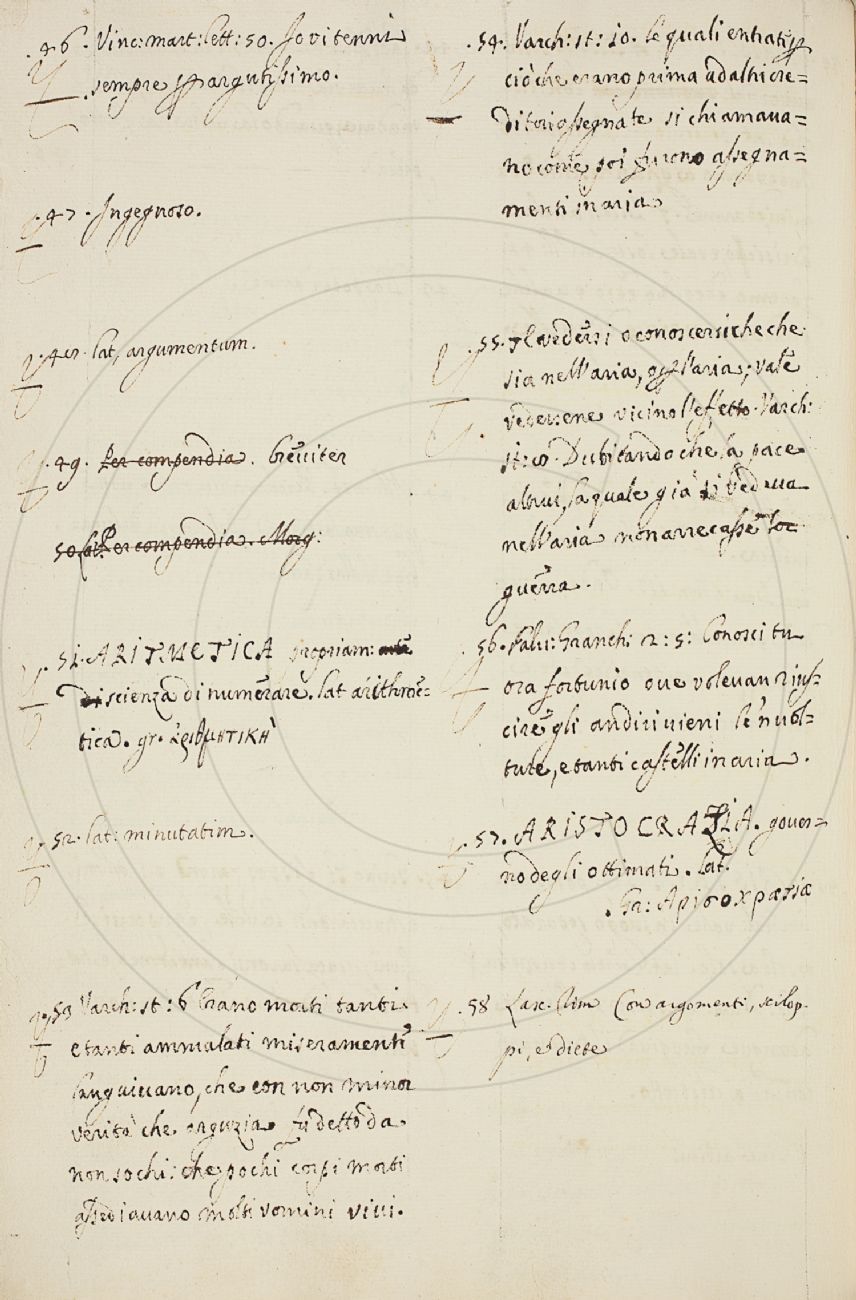 .46. Vinc: mart: lett: 50. Io vi tenni
sempre p argutissimo.
.47. Ingegnoso.
.48. lat, argumentum.
.49. Per compendia. breuiter
50 lat: Per compendia. Morg:
51. ARITMETICA propriam:
di scienza di numerare. lat arithme=
tica. gr. ἀριθμητικὴ
52. lat: minutatim.
.53 Varch: st: 6 Erano morti tanti
e tanti ammalati miseramente
languiuano, che con non minor
verità che arguzia fù detto da
non so chi: che pochi corpi morti
assediauano molti vomini viui.
.54. Varch: st: 10. le quali entrate p
ciò che erano prima ad altri cre=
ditori assegnate si chiamaua=
no come poi furono assegna=
menti in aria
.55. Il vedersi o conoscersi che che
sia nell'aria, o p l'aria; vale
vedersene vicino l'effetto. Varch:
st: 10. Dubitando che la pace
altrui, la quale già si vedeua
nell'aria non arrecasse loro
guerra.
56. Salu: Granch: 2: 5: Conosci tu
ora fortunio oue voleuan rius=
cire gli andiriuieni le nubl=
ture, e tanti castelli in aria.
.57. ARISTOCRAZIA. gouer=
no degli ottimati. Lat.
. Gr: Αριςοχρατια
.58 Lasc. Rim Con argomenti, scilop-
pi, e diete